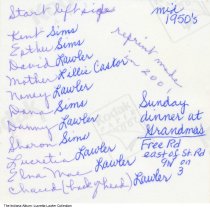 Start left side
mid 1950's
Kent Sims
Esther Sims
David Lawler
Mother Lillis Castor
Nancy Lawler
Dana Sims
Danny Lawler
Sharon Sims
Lucretia Lawler
Elna Mae Lawler
Chaced (back of head) Lawler
reprint made in 2001
Sunday dinner at Grandmas
Free Rd
east of St. Rd
9N on
3
The Indiana Album: Lucretia Lawler Collection